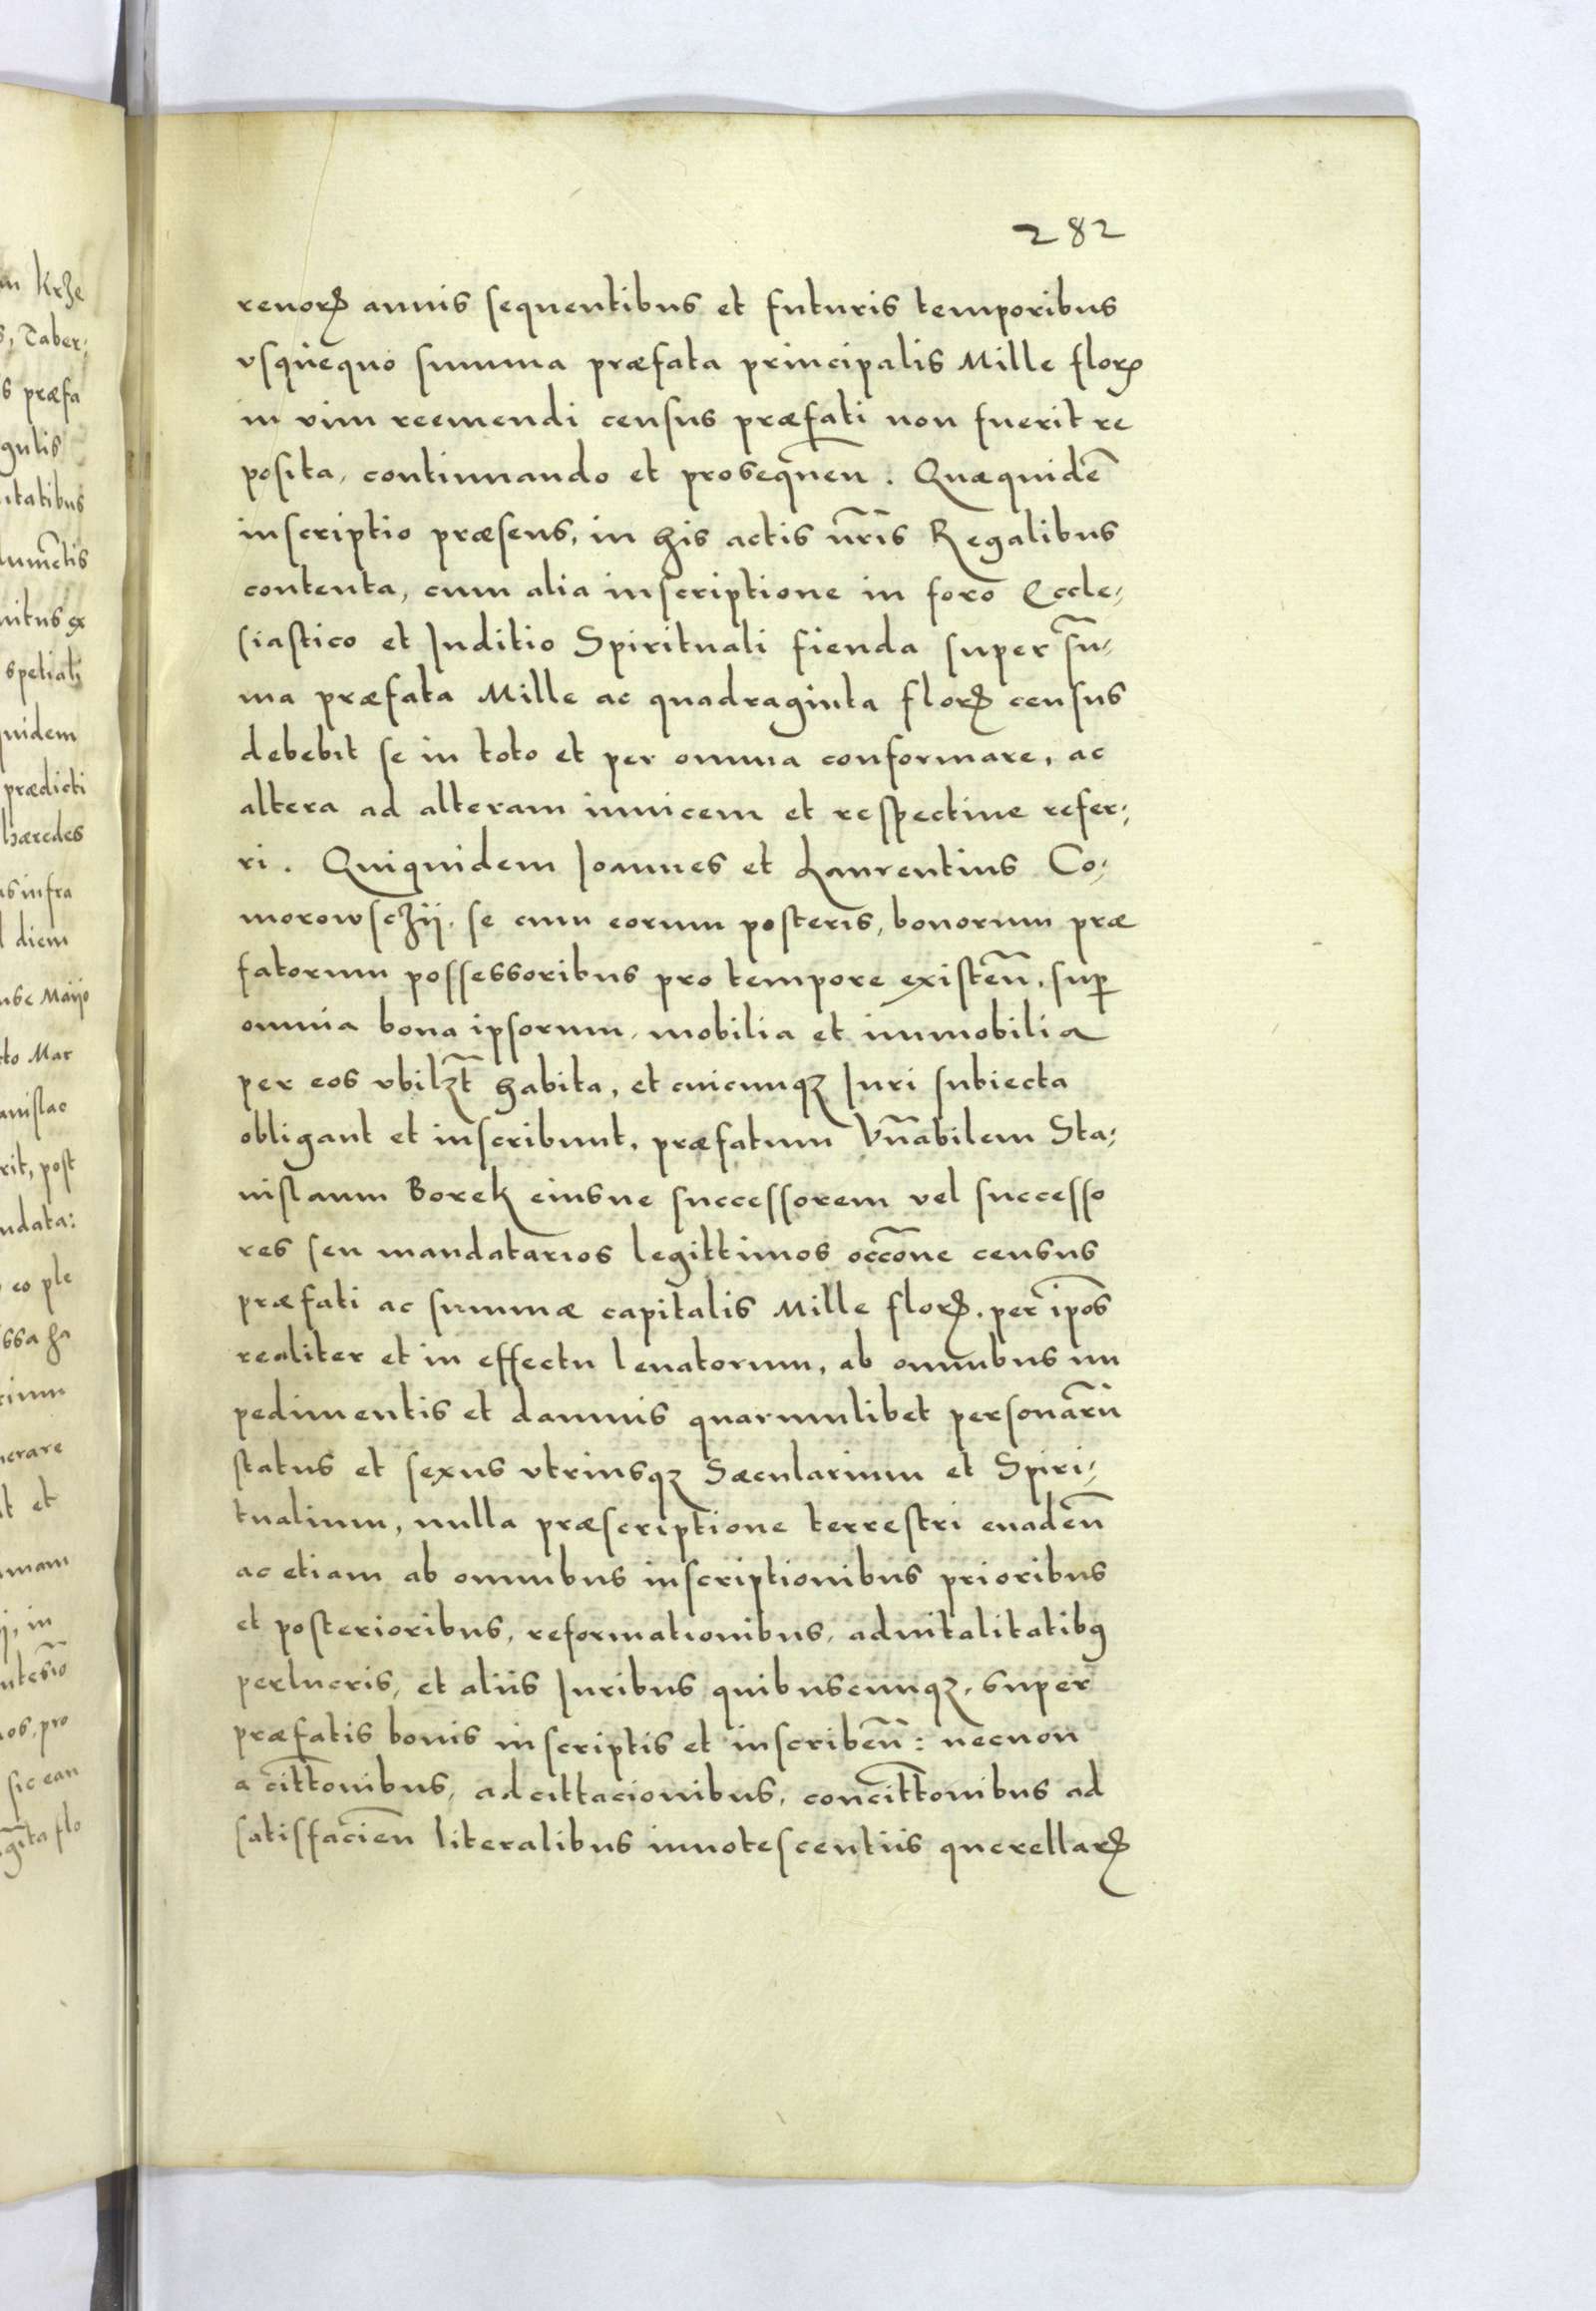 282
renorꝝ annis sequentibus et futuris temporibus
vsquequo summa præfata principalis Mille florꝝ
in vim reemendi census præfati non fuerit re
posita, continuando et prosequen̄. Quæquidē
inscriptio præsens, in his actis nr̄is Regalibus
contenta, cum alia inscriptione in foro Eccle,
siastico et Iuditio Spirituali fienda super sū,
ma præfata Mille ac quadraginta florꝝ census
debebit se in toto et per omnia conformare, ac
altera ad alteram inuicem et respectiue refer,
ri. Quiquidem Ioannes et Laurentius Co,
morowsczÿ, se cum eorum posteris, bonorum præ
fatorum possessoribus pro tempore existen̄, suꝑ
omnia bona ipsorum, mobilia et immobilia
per eos vbilꝫt habita, et cuicunqꝫ Iuri subiecta
obligant et inscribunt, præfatum Vn̄abilem Sta,
nislaum Borek eiusue successorem vel successo
res seu mandatarios legittimos occōne census
præfati ac summæ capitalis Mille florꝝ. per ip̄os
realiter et in effectu leuatorum, ab omnibus im
pedimentis et damnis quarumlibet personarū
status et sexus vtriusqꝫ Sæcularium et Spiri,
tualium, nulla præscriptione terrestri euaden̄
ac etiam ab omnibus inscriptionibus prioribus
et posterioribus, reformationibus, aduitalitatibꝯ
perlucris, et aliis Iuribus quibuscunqꝫ, super
præfatis bonis inscriptis et inscriben̄: necnon
a citt̄onibus, adcittacionibus, concitt̄onibus ad
satisfacien̄ literalibus innotescentiis querellarꝝ